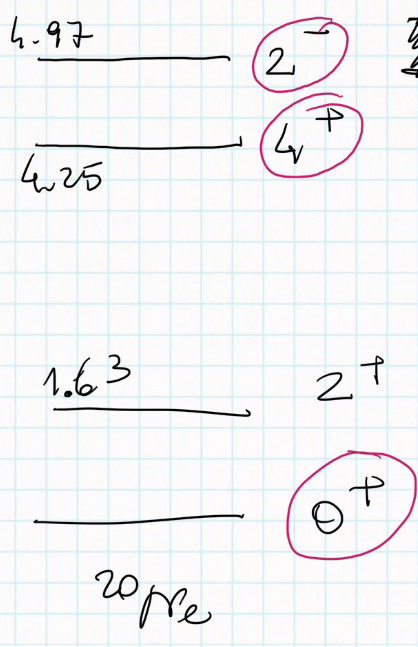 4.97 2⁻
4⁺
4.25
1.63 2⁺
0⁺
20Ne